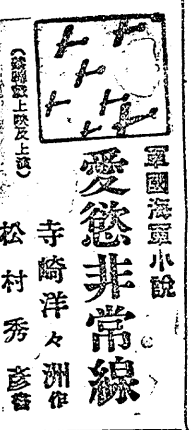 軍國海軍小說
愛慾非常線
寺崎洋々洲作
松村秀彦畵
(禁轉載上映及上演)